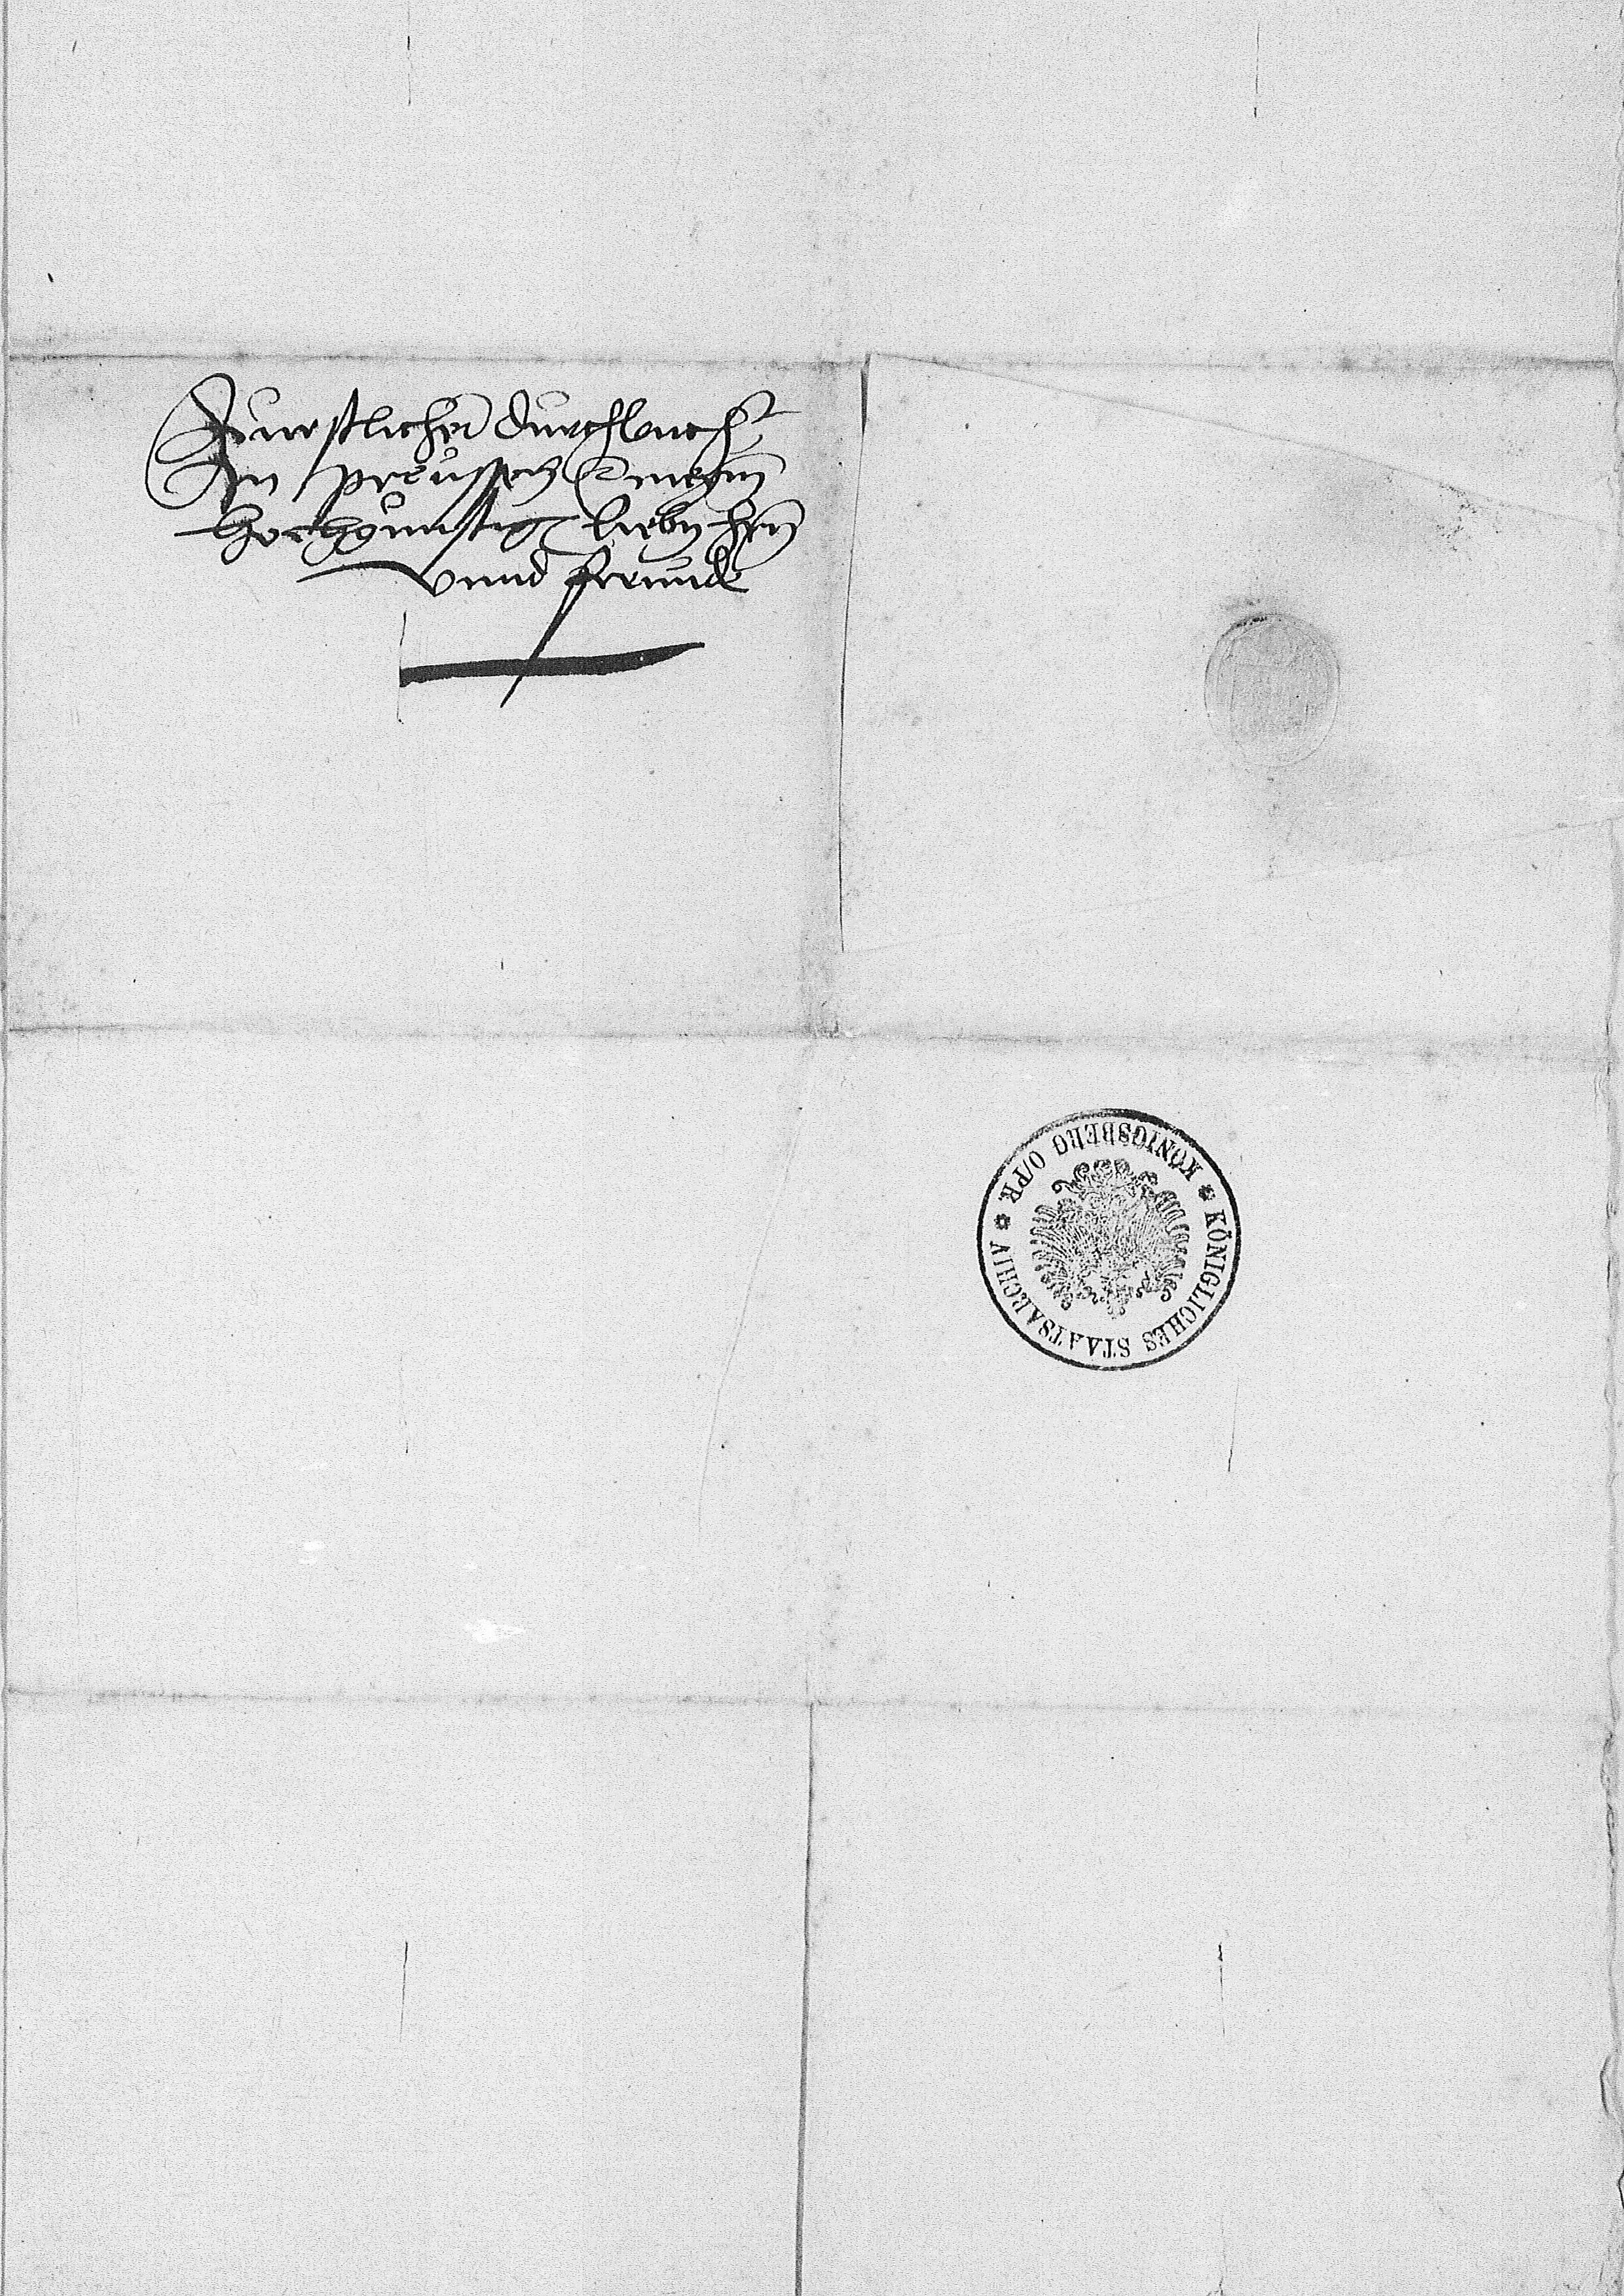 Furstlicher durchlauch
In preussen etc meynn
Hochgunstig liebn hern
vnnd freunde
KÖNIGLICHES STAATSARCHIV
KÖNIGSBERG O/PR.